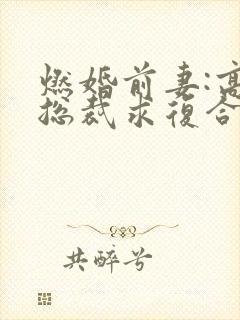 燃婚前妻:高
总裁求復合
共醉兮